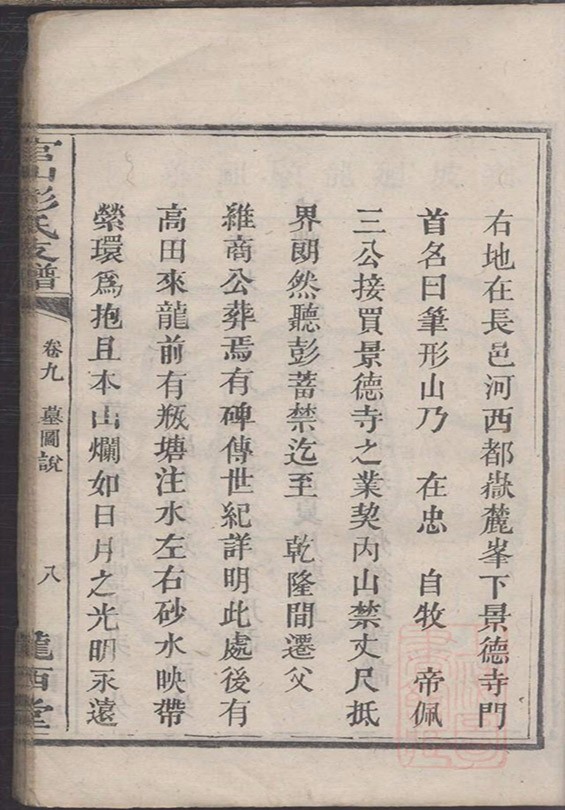 右地在長邑河西都嶽麓峯下景德寺門
首名曰筆形山乃 在忠 自牧 帝佩
三公接買景德寺之業契內山禁丈尺抵
界朗然聽彭蓄禁迄至 乾隆間遷父
維商公葬焉有碑傳世紀詳明此處後有
高田來龍前有瓶塘注水左右砂水映帶
縈環爲抱且本山爛如日月之光明永遠
官山彭氏支譜
卷九 墓圖說
八
隴西堂